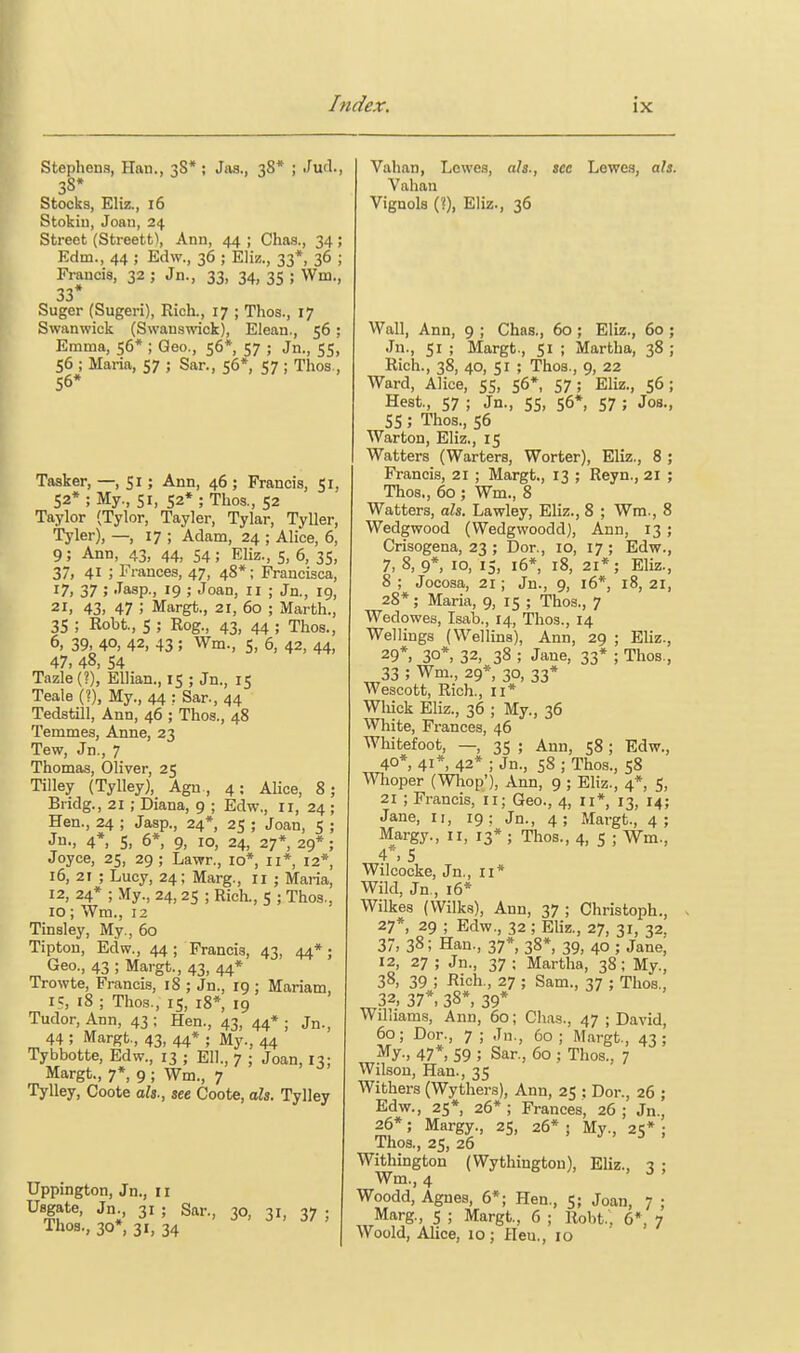 Index. ix
Stephens, Han., 38* ; Jas., 38* ; Jud.,
38*
Stocks, Eliz., 16
Stokin, Joan, 24
Street (Streett), Ann, 44 ; Chas., 34 ;
Edm., 44 ; Edw., 36 ; Eliz., 33*, 36 ;
Francis, 32 ; Jn., 33, 34, 35 ; Wm.,
33*
Suger (Sugeri), Rich., 17 ; Thos., 17
Swanwick (Swanswick), Elean., 56 ;
Emma, 56* ; Geo., 56*, 57 ; Jn., 55,
56 ; Maria, 57 ; Sar., 56*, 57 ; Thos.,
56*
Tasker, —, 51 ; Ann, 46 ; Francis, 51,
52* ; My., 51, 52* ; Thos., 52
Taylor (Tylor, Tayler, Tylar, Tyller,
Tyler), —, 17 ; Adam, 24 ; Alice, 6,
9 ; Ann, 43, 44, 54 ; Eliz., 5, 6, 35,
37, 41 ; Frances, 47, 48* ; Francisca,
17, 37 ; Jasp., 19 ; Joan, 11 ; Jn., 19,
21, 43, 47 ; Margt., 21, 60 ; Marth.,
35 ; Robt., 5 ; Rog., 43, 44 ; Thos.,
6, 39, 40, 42, 43 ; Wm., 5, 6, 42, 44,
47, 48, 54
Tazle (?), Ellian., 15 ; Jn., 15
Teale (?), My., 44 ; Sar., 44
Tedstill, Ann, 46 ; Thos., 48
Temmes, Anne, 23
Tew, Jn., 7
Thomas, Oliver, 25
Tilley (Tylley), Agn., 4 ; Alice, 8 ;
Bridg., 21 ; Diana, 9 ; Edw., 11, 24 ;
Hen., 24 ; Jasp., 24*, 25 ; Joan, 5 ;
Jn., 4*, 5, 6*, 9, 10, 24, 27*, 29* ;
Joyce, 25, 29 ; Lawr., 10*, 11*, 12*,
16, 21 ; Lucy, 24 ; Marg., 11 ; Maria,
12, 24* ; My., 24, 25 ; Rich., 5 ; Thos.,
10 ; Wm., 12
Tinsley, My., 60
Tipton, Edw., 44 ; Francis, 43, 44* ;
Geo., 43 ; Margt., 43, 44*
Trowte, Francis, 18 ; Jn., 19 ; Mariam,
15, 18 ; Thos., 15, 18*, 19
Tudor, Ann, 43 ; Hen., 43, 44* ; Jn.,
44 ; Margt., 43, 44* ; My., 44
Tybbotte, Edw., 13 ; Ell., 7 ; Joan, 13 ;
Margt., 7*, 9 ; Wm., 7
Tylley, Coote als., see Coote, als. Tylley
Uppington, Jn., 11
Usgate, Jn., 31 ; Sar., 30, 31, 37 ;
Thos., 30*, 31, 34
Vahan, Lewes, als., see Lewes, als.
Vahan
Vignols (?), Eliz., 36
Wall, Ann, 9 ; Chas., 60 ; Eliz., 60 ;
Jn., 51 ; Margt., 51 ; Martha, 38 ;
Rich., 38, 40, 51 ; Thos., 9, 22
Ward, Alice, 55, 56*, 57 ; Eliz., 56 ;
Hest., 57 ; Jn., 55, 56*, 57 ; Jos.,
55 ; Thos., 56
Warton, Eliz., 15
Watters (Warters, Worter), Eliz., 8 ;
Francis, 21 ; Margt., 13 ; Reyn., 21 ;
Thos., 60 ; Wm., 8
Watters, als. Lawley, Eliz., 8 ; Wm., 8
Wedgwood (Wedgwoodd), Ann, 13 ;
Crisogena, 23 ; Dor., 10, 17 ; Edw.,
7, 8, 9*, 10, 15, 16*, 18, 21* ; Eliz.,
8 ; Jocosa, 21 ; Jn., 9, 16*, 18, 21,
28* ; Maria, 9, 15 ; Thos., 7
Wedowes, Isab., 14, Thos., 14
Wellings (Wellins), Ann, 29 ; Eliz.,
29*, 30*, 32, 38 ; Jane, 33* ; Thos.,
33 ; Wm., 29*, 30, 33*
Wescott, Rich., 11*
Whick Eliz., 36 ; My., 36
White, Frances, 46
Whitefoot, —, 35 ; Ann, 58 ; Edw.,
40*, 41*, 42* ; Jn., 58 ; Thos., 58
Whoper (Whop'), Ann, 9 ; Eliz., 4*, 5,
21 ; Francis, 11 ; Geo., 4, 11*, 13, 14 ;
Jane, 11, 19 ; Jn., 4 ; Margt., 4 ;
Margy., 11, 13* ; Thos., 4, 5 ; Wm.,
4*, 5
Wilcocke, Jn., 11*
Wild, Jn., 16*
Wilkes (Wilks), Ann, 37 ; Christoph.,
27*, 29 ; Edw., 32 ; Eliz., 27, 31, 32,
37, 38 ; Han., 37*, 38*, 39, 40 ; Jane,
12, 27 ; Jn., 37 ; Martha, 38 ; My.,
38, 39 ; Rich., 27 ; Sam., 37 ; Thos.,
32, 37*, 38*, 39*
Williams, Ann, 60 ; Chas., 47 ; David,
60 ; Dor., 7 ; Jn., 60 ; Margt., 43 ;
My., 47*, 59 ; Sar., 60 ; Thos., 7
Wilson, Han., 35
Withers (Wythers), Ann, 25 ; Dor., 26 ;
Edw., 25*, 26* ; Frances, 26 ; Jn.,
26* ; Margy., 25, 26* ; My., 25* ;
Thos., 25, 26
Withington (Wythington), Eliz., 3 ;
Wm., 4
Woodd, Agnes, 6* ; Hen., 5 ; Joan, 7 ;
Marg., 5 ; Margt., 6 ; Robt., 6*, 7
Woold, Alice, 10 ; Hen., 10